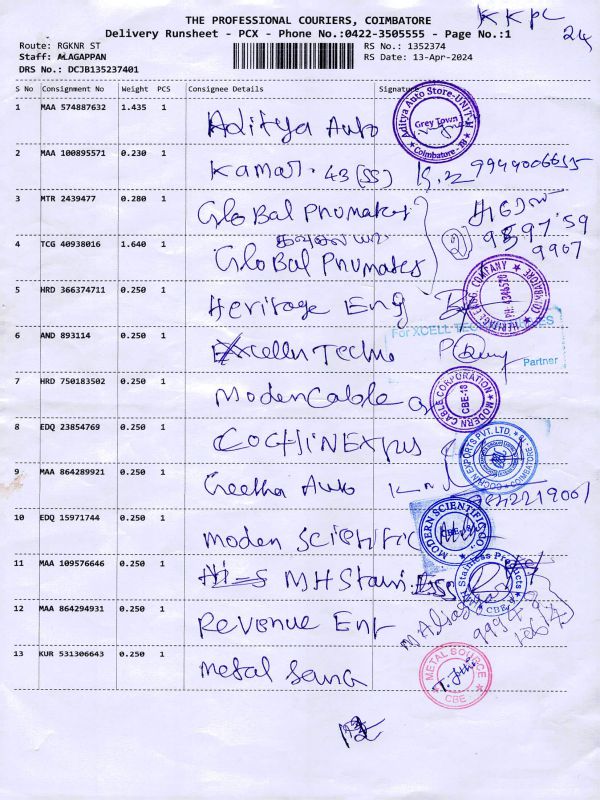 KKPC
24
THE PROFESSIONAL COURIERS, COIMBATORE
Delivery Runsheet - PCX - Phone No.:0422-3505555 - Page No.:1
Route: RGKNR ST
RS No.: 1352374
Staff: ALAGAPPAN
RS Date: 13-Apr-2024
DRS No.: DCJB135237401
S No Consignment No Weight PCS Consignee Details Signature
1 MAA 574887632 1.435 1 Aditya Auto
Aditya Auto Store-UNIT-II
Grey Town
Coimbatore - 18
2 MAA 100895571 0.230 1 Kamar. 43 (SS)
3 MTR 2439477 0.280 1 Global Pnumates
2
9907
4 TCG 40938016 1.640 1 Global Pnumates
5 HRD 366374711 0.250 1 Heritage Eng
6 AND 893114 0.250 1 Excellu Techno
For XCELL TECHNOLOGIES
Partner
7 HRD 750183502 0.250 1 Moden Cable
MODERN CABLE CORPORATION
CBE-18
8 EDQ 23854769 0.250 1 Cochin Expus
COCHIN EXPORTS PVT. LTD.
COIMBATORE
9 MAA 864289921 0.250 1 Geetha Auto
10 EDQ 15971744 0.250 1 Moden Scientific
MODERN SCIENTIFIC CO.
CBE - 18
11 MAA 109576646 0.250 1 MH Stain.
Stainless Products
CBE
12 MAA 864294931 0.250 1 Revenue Ent
13 KUR 531306643 0.250 1 Metal Saurce
METAL SOURCE
CBE